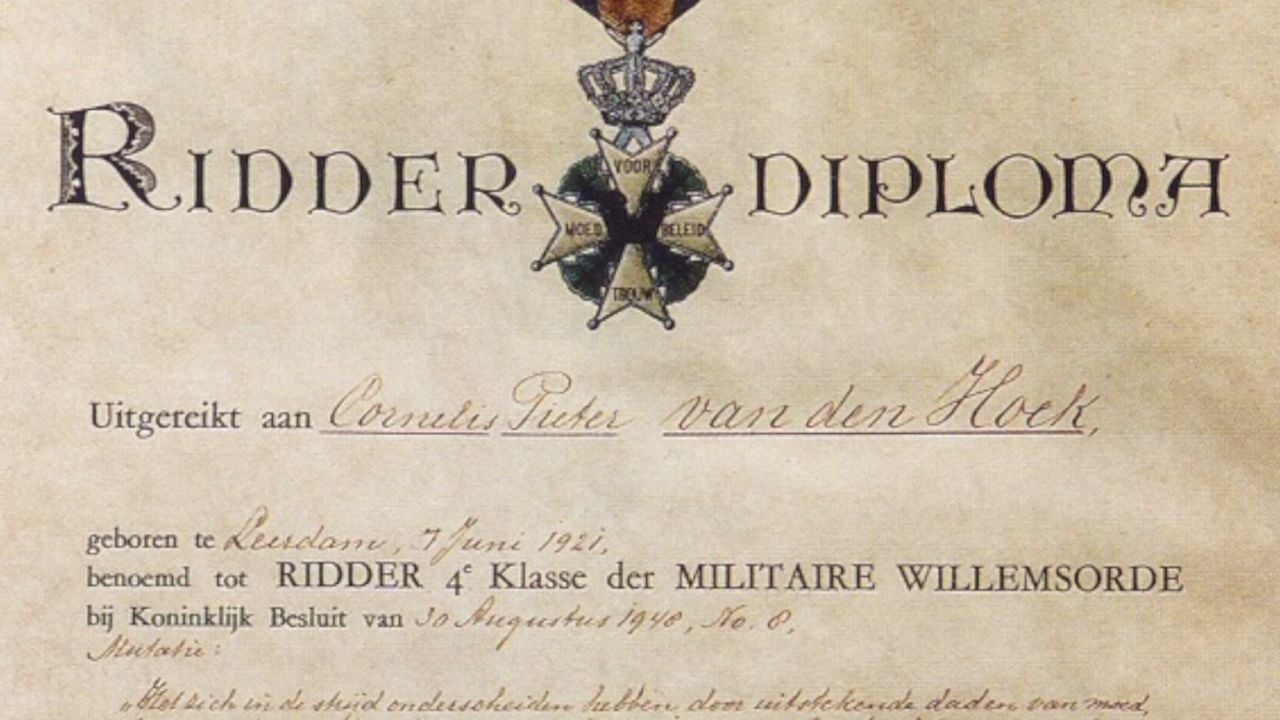 RIDDER DIPLOMA
VOOR
MOED BELEID
TROUW
Uitgereikt aan Cornelis Pieter van den Hoek,
geboren te Leerdam, 7 Juni 1921,
benoemd tot RIDDER 4e Klasse der MILITAIRE WILLEMSORDE
bij Koninklijk Besluit van 30 Augustus 1948, No. 8,
Mutatie:
„Het zich in de strijd onderscheiden hebben door uitstekende daden van moed,